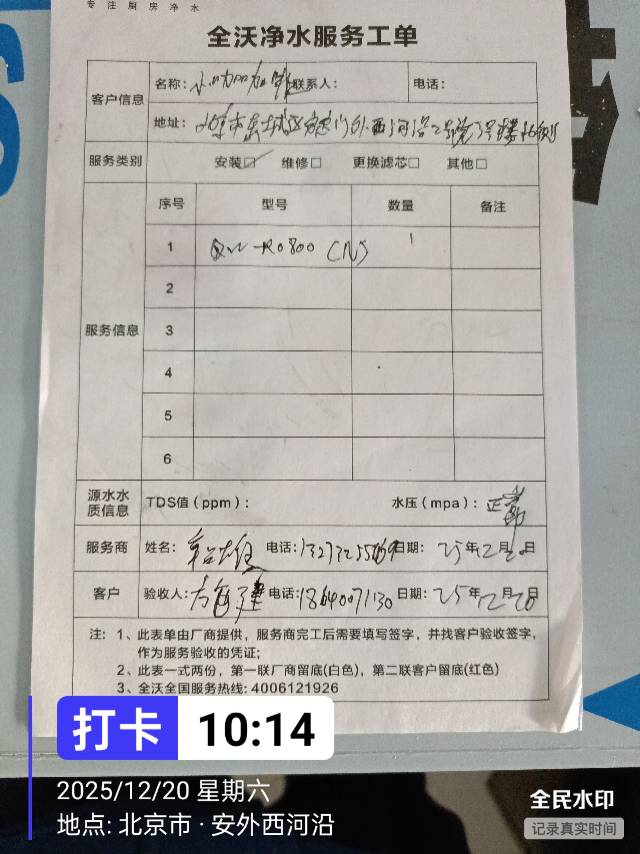 专注厨房净水
全沃净水服务工单
客户信息
名称: 联系人: 电话:
地址: 北京市东城区安定门外西河沿
服务类别 安装☑ 维修□ 更换滤芯□ 其他□
服务信息
序号 型号 数量 备注
1 QW-RO800 (N) 1
2
3
4
5
6
源水水质信息 TDS值(ppm): 水压(mpa): 正常
服务商 姓名: 电话: 日期: 25年12月20日
客户 验收人: 电话: 日期: 25年12月20日
注: 1、此表单由厂商提供,服务商完工后需要填写签字,并找客户验收签字,
作为服务验收的凭证;
2、此表一式两份,第一联厂商留底(白色),第二联客户留底(红色)
3、全沃全国服务热线: 4006121926
打卡 10:14
2025/12/20 星期六
地点: 北京市·安外西河沿
全民水印
记录真实时间